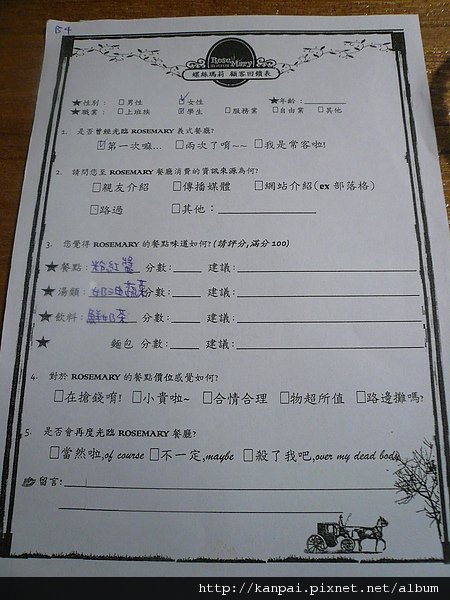 B4
Rose Mary
螺絲瑪莉 顧客回饋表
★性別： □男性 ☑女性 ★年齡：
★職業： □上班族 ☑學生 □服務業 □自由業 □其他
1. 是否曾經光臨 ROSEMARY 義式餐廳?
☑第一次嘛... □兩次了唷~~ □我是常客啦!
2. 請問您至 ROSEMARY 餐廳消費的資訊來源為何?
□親友介紹 □傳播媒體 □網站介紹(ex 部落格)
□路過 □其他：
3. 您覺得 ROSEMARY 的餐點味道如何?(請評分,滿分 100)
★餐點：粉紅醬 分數： 建議：
★湯類：奶油蔬菜 分數： 建議：
★飲料：鮮奶茶 分數： 建議：
★ 麵包 分數： 建議：
4. 對於 ROSEMARY 的餐點價位感覺如何?
□在搶錢唷! □小貴啦~ □合情合理 □物超所值 □路邊攤嗎?
5. 是否會再度光臨 ROSEMARY 餐廳?
□當然啦,of course □不一定,maybe □殺了我吧,over my dead body
留言：
http://kanpai.pixnet.net/album